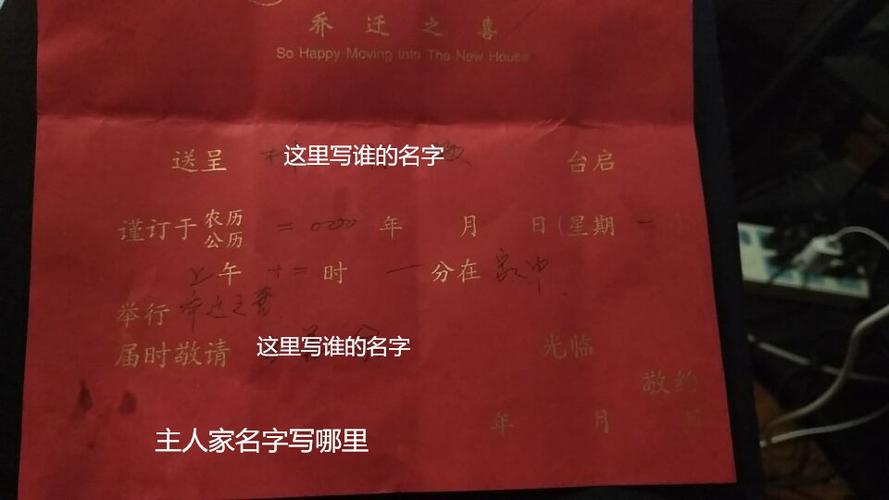 乔迁之喜
So Happy Moving Into The New House
送呈 这里写谁的名字 台启
谨订于 农历 公历 二 年 月 日(星期一
上午 十二 时 一 分在 家中
举行 乔迁之喜
届时敬请 这里写谁的名字 光临
敬约
年 月 日
主人家名字写哪里